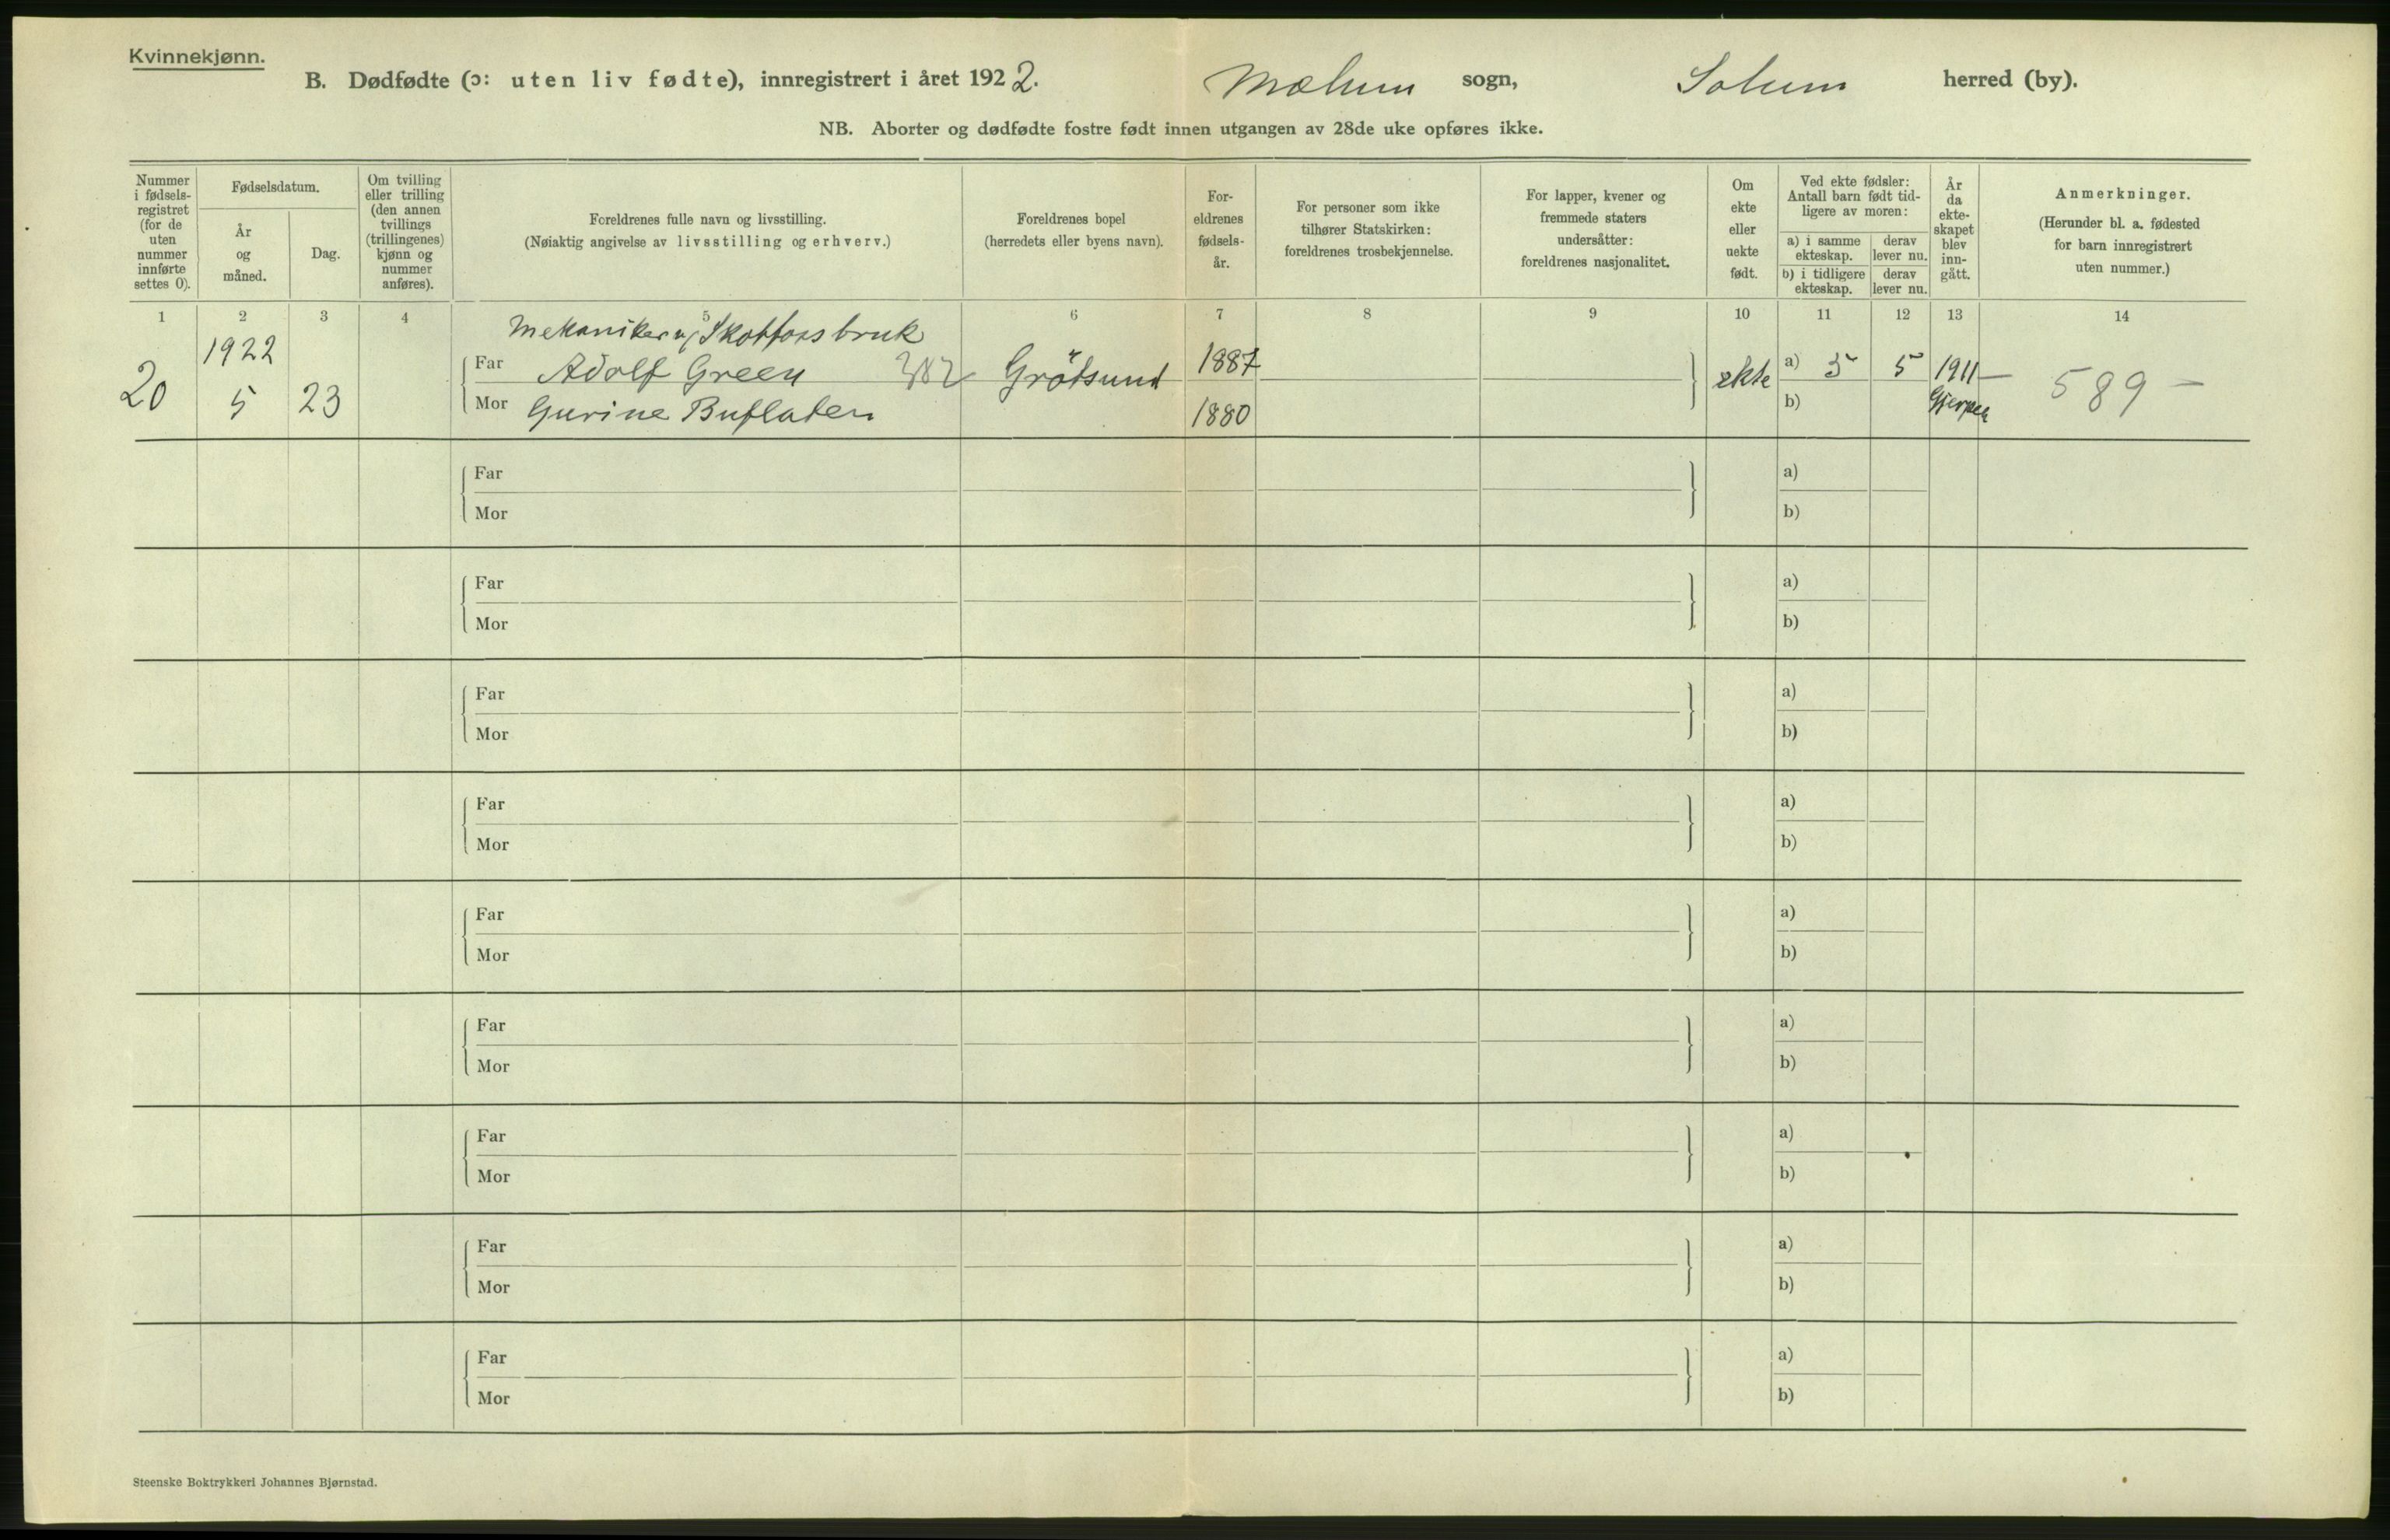 Kvinnekjønn.
B. Dødfødte (ɔ: uten liv fødte), innregistrert i året 1922. Mælum sogn, Solum herred (by).
NB. Aborter og dødfødte fostre født innen utgangen av 28de uke opføres ikke.
Nummer
i fødsels-
registret
(for de
uten
nummer
innførte
settes 0).
Fødselsdatum.
År
og
måned.
Dag.
Om tvilling
eller trilling
(den annen
tvillings
(trillingenes)
kjønn og
nummer
anføres).
Foreldrenes fulle navn og livsstilling.
(Nøiaktig angivelse av livsstilling og erhverv.)
Foreldrenes bopel
(herredets eller byens navn).
For-
eldrenes
fødsels-
år.
For personer som ikke
tilhører Statskirken:
foreldrenes trosbekjennelse.
For lapper, kvener og
fremmede staters
undersåtter:
foreldrenes nasjonalitet.
Om
ekte
eller
uekte
født.
Ved ekte fødsler:
Antall barn født tid-
ligere av moren:
a) i samme
ekteskap.
derav
lever nu.
b) i tidligere
ekteskap.
derav
lever nu.
År
da
ekte-
skapet
blev
inn-
gått.
Anmerkninger.
(Herunder bl. a. fødested
for barn innregistrert
uten nummer.)
1 2 3 4 5 6 7 8 9 10 11 12 13 14
Mekaniker Skotfoss bruk
1922
Far Adolf Green Grötsund 1887 a) 5 5 1911
20 5 23 ekte 589 –
Mor Gurine Buflaten 1880 b) Gjerpen
Far a)
Mor b)
Far a)
Mor b)
Far a)
Mor b)
Far a)
Mor b)
Far a)
Mor b)
Far a)
Mor b)
Far a)
Mor b)
Far a)
Mor b)
Far a)
Mor b)
Steenske Boktrykkeri Johannes Bjørnstad.